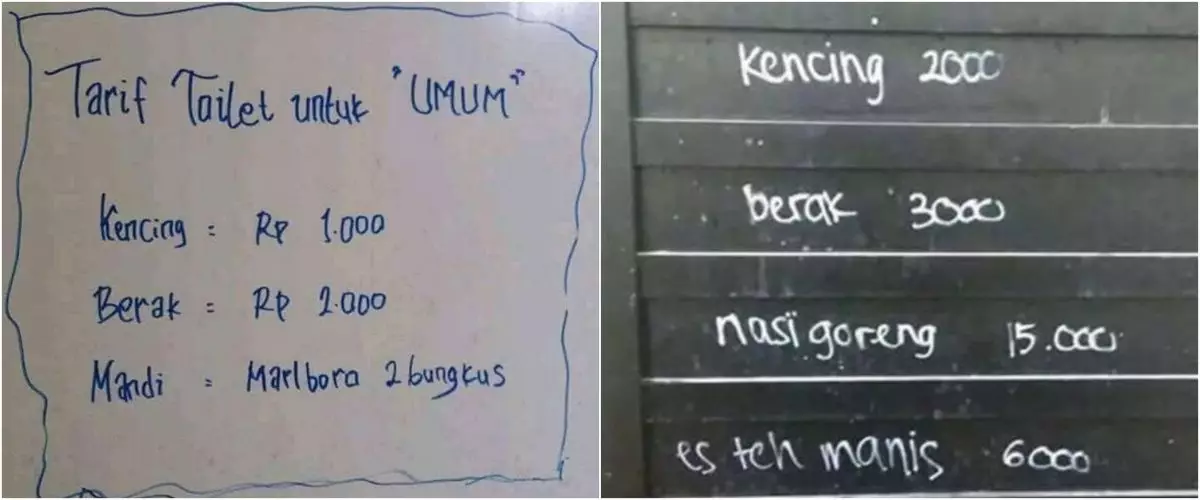 Tarif Toilet untuk "UMUM"
Kencing = Rp 1.000
Berak = Rp 2.000
Mandi = Marlboro 2 bungkus
Kencing 2000
berak 3000
nasi goreng 15.000
es teh manis 6000